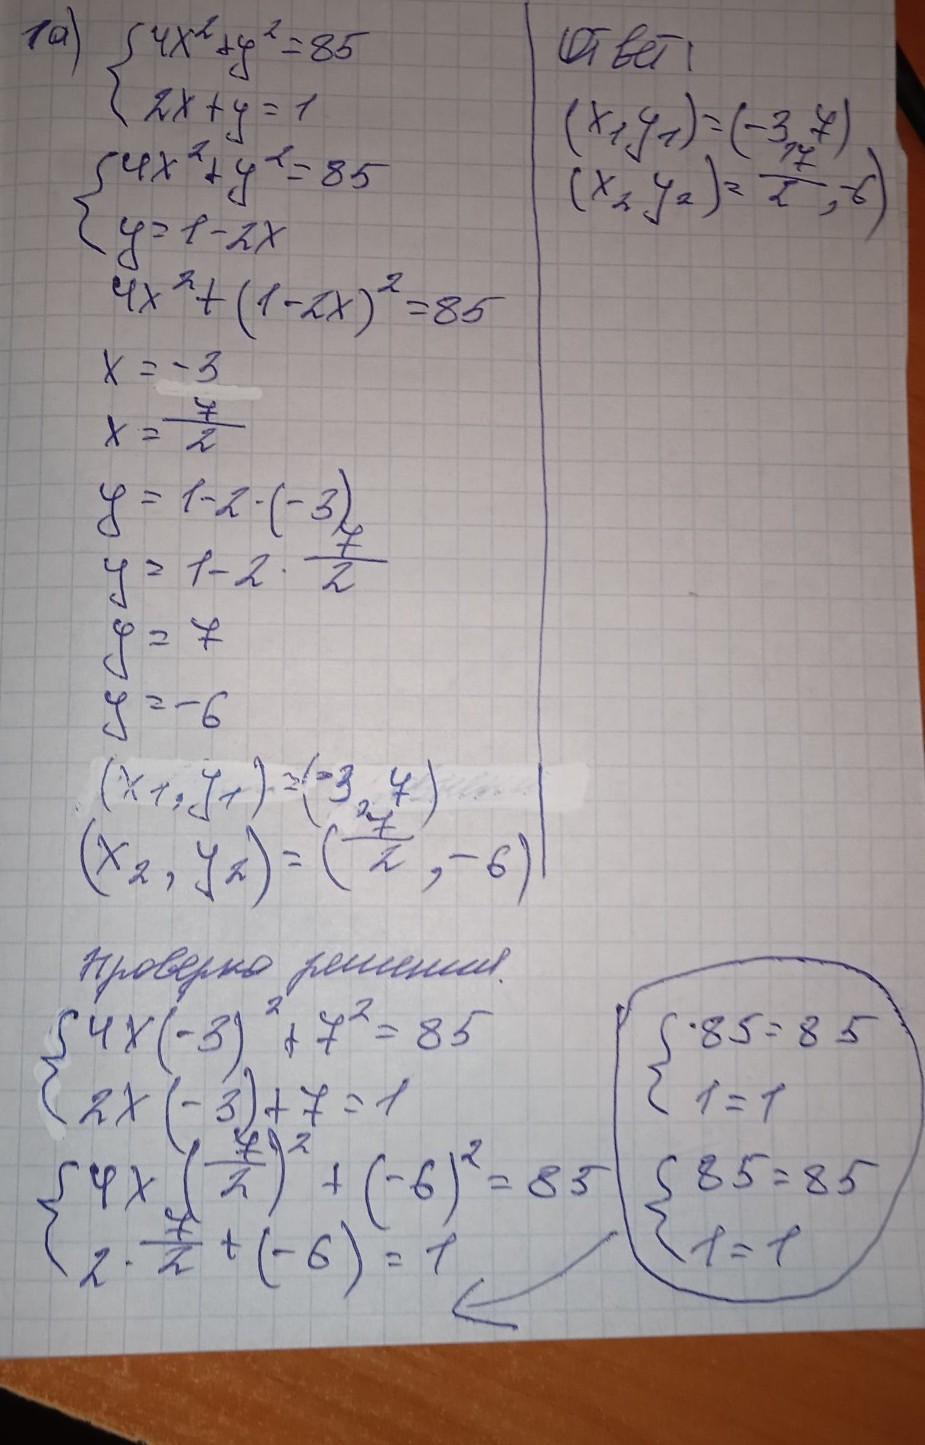 1а) { 4x² + y² = 85
2x + y = 1
{ 4x² + y² = 85
y = 1 - 2x
4x² + (1 - 2x)² = 85
x = -3
x = 7/2
y = 1 - 2 · (-3)
y = 1 - 2 · 7/2
y = 7
y = -6
(x₁, y₁) = (-3, 7)
(x₂, y₂) = (7/2, -6)
Ответ:
(x₁ y₁) = (-3, 7)
(x₂ y₂) = 17/2, -6)
Проверка решения.
{ 4x(-3)² + 7² = 85
2x(-3) + 7 = 1
{ 4x(7/2)² + (-6)² = 85
2 · 7/2 + (-6) = 1
{ 85 = 85
1 = 1
{ 85 = 85
1 = 1